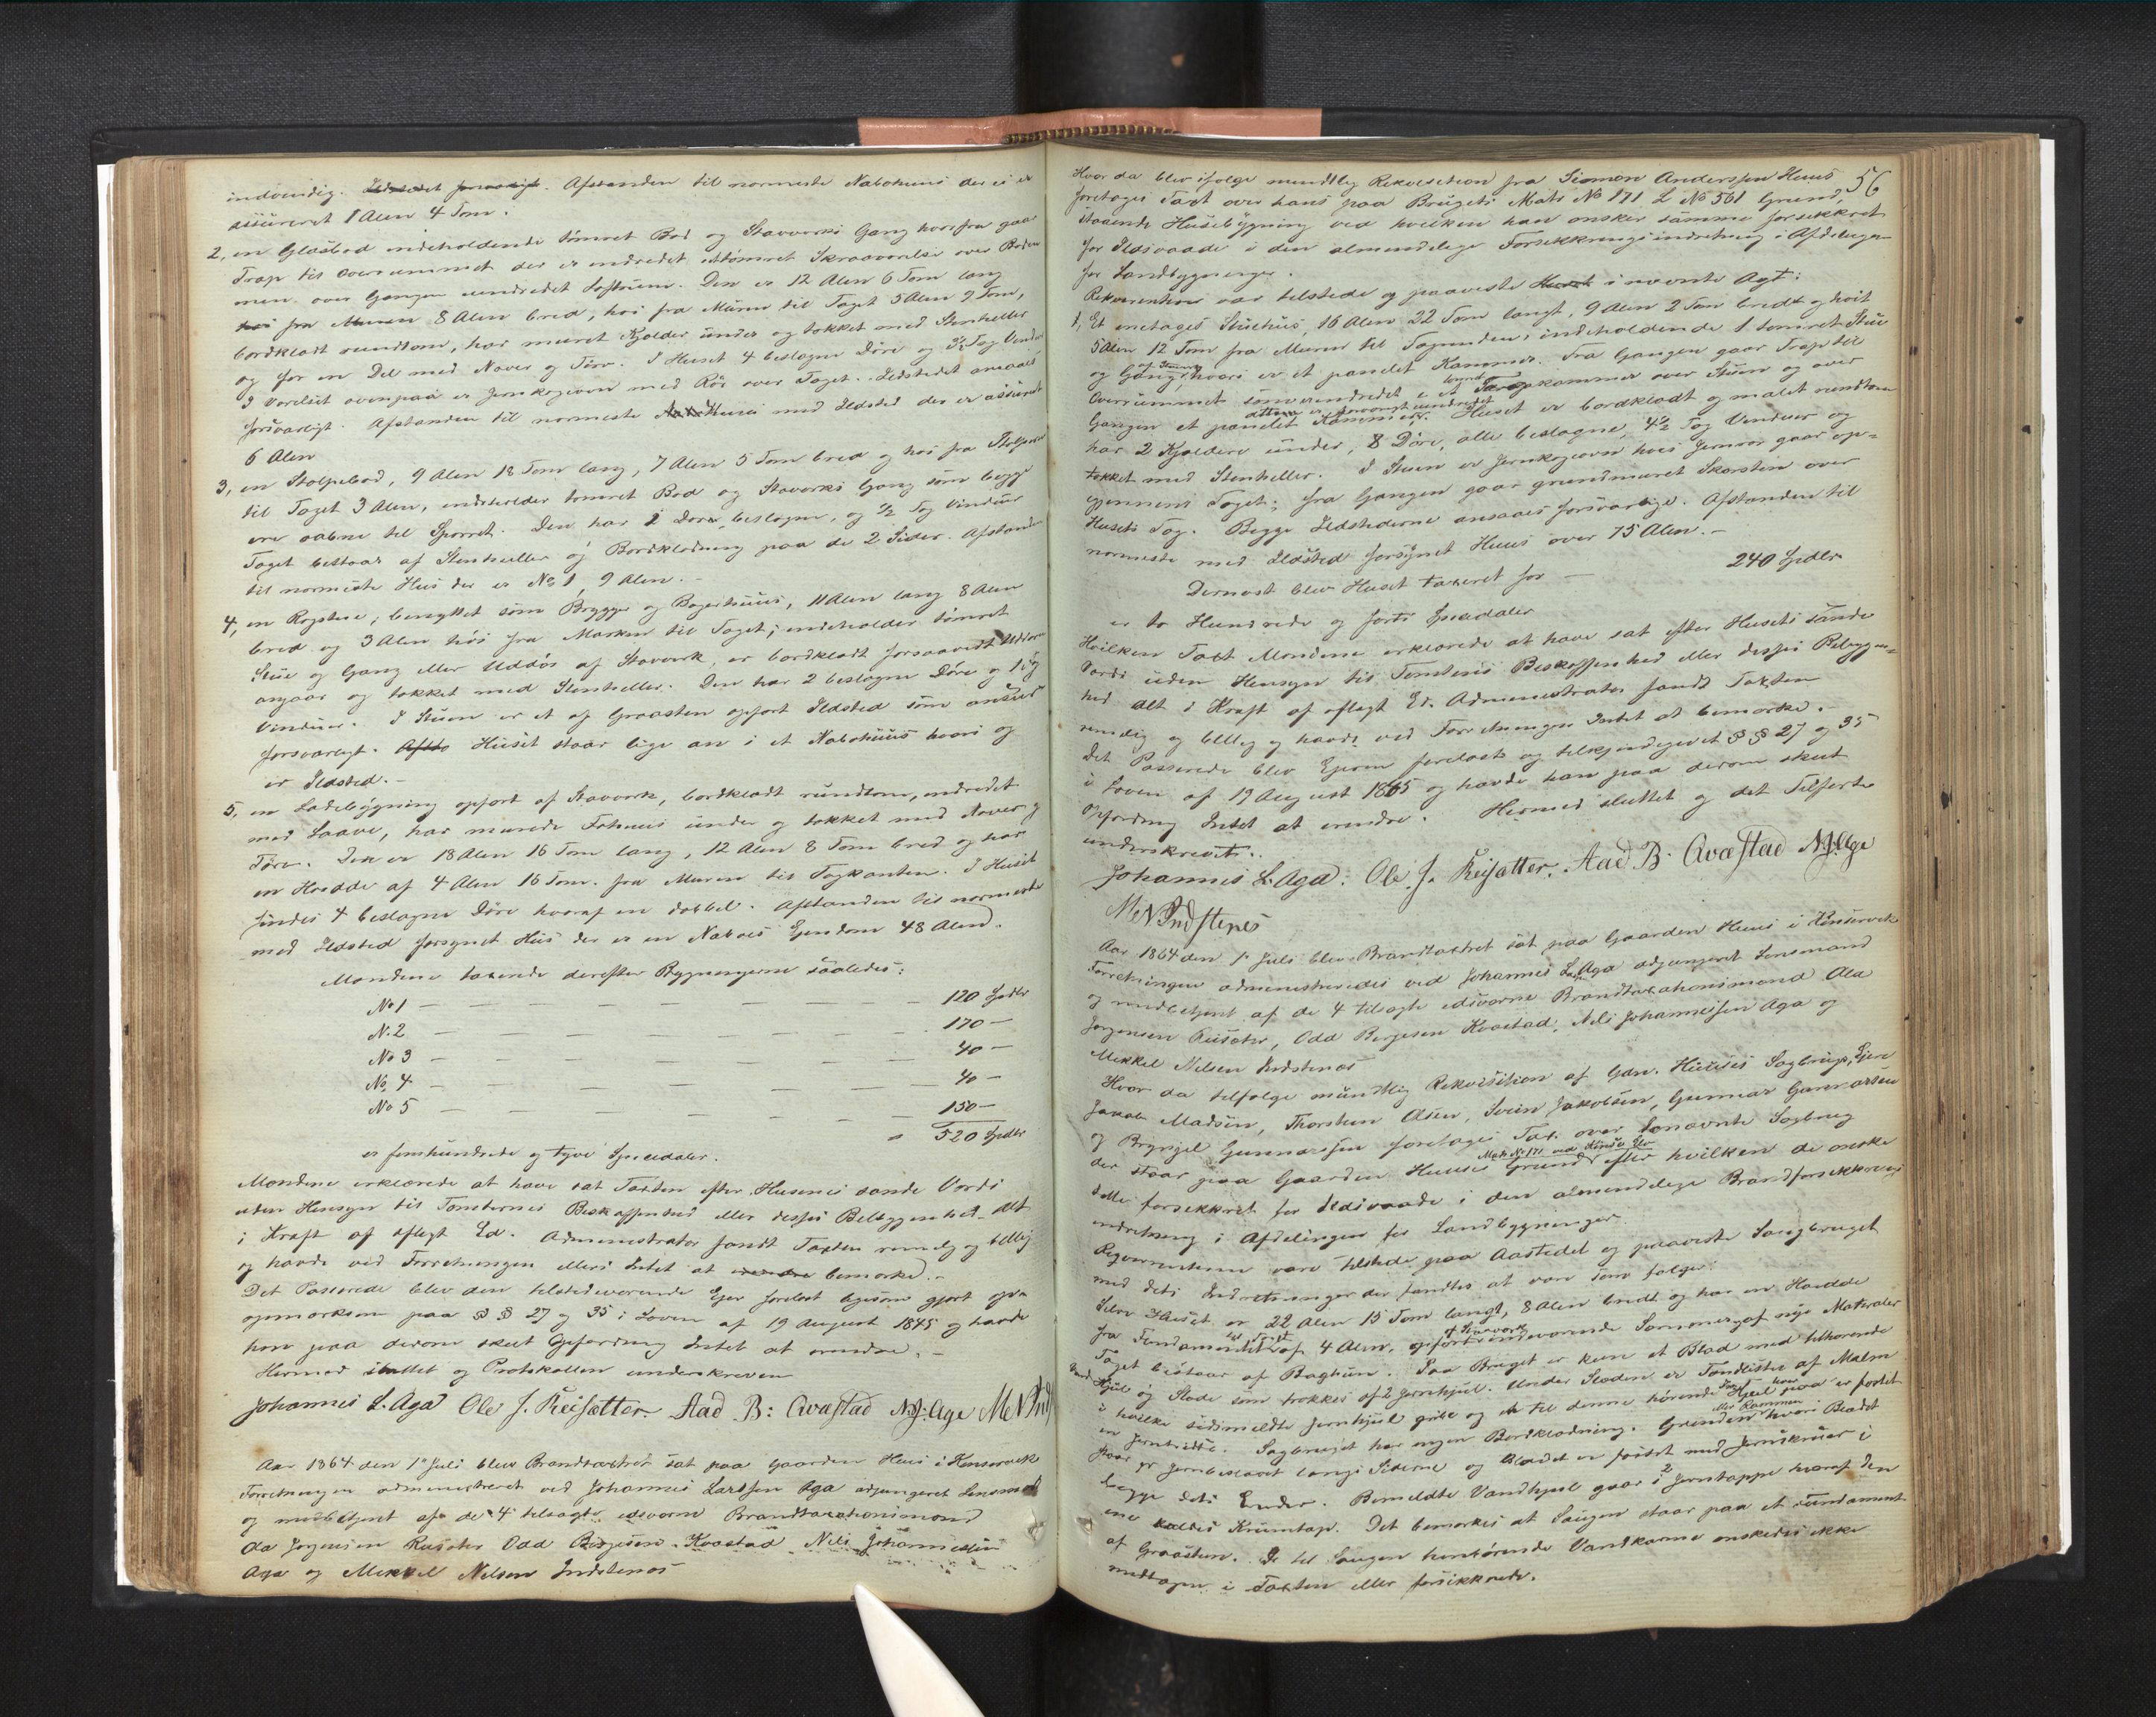 indvendig. Ildstedet forsvarligt. Afstanden til nærmeste Nabohuus der ei er
assureret 1 Alen 4 Tom.
2, en Gladbod indeholdende tømret Bod og Stavværks Gang hvorfra gaar
Trap til Overrummet der er indredet tømret Skraaværelse over Boden
men over Gangen uindredet Loftrum. Den er 12 Alen 6 Tom lang
høi fra Muren 8 Alen bred, høi fra Muren til Taget 5 Alen 9 Tom,
bordklædt rundtom, har muret Kjelder under og tækket med Stenheller
og for en Del med Næver og Tørv. I Huset 4 beslagne Døre og 3½ Fag Vinduer
I Værelset ovenpaa er Jernkogeovn med Rør over Taget. Ildstedet ansaaes
forsvarligt. Afstanden til nærmeste Huus med Ildsted der er assureret
6 Alen
3, en Stolpebod, 9 Alen 18 Tom lang, 7 Alen 5 Tom bred og høi fra Stolperne
til Taget 3 Alen, indeholder tømret Bod og Stavværks Gang som begge
ere aabne til Sperret. Den har 2 Døre beslagne, og ½ Fag Vinduer
Taget bestaar af Stenheller og Bordklædning paa de 2 Sider. Afstanden
til nærmeste Hus der er No 1, 9 Alen. -
4, en Røgstue, benyttet som Brygger og Bagerhuus, 11 Alen lang 8 Alen
bred og 3 Alen høi fra Marken til Taget; indeholder tømret
Stue og Gang eller Uddør af Stavværk, er bordklædt forsaavidt Uddøren
angaar og tækket med Stenheller. Den har 2 beslagne Døre og 1 Fag
Vinduer. I Stuen er et af Graasten opført Ildsted som ansaaes
forsvarligt. Afsta Huset staar lige an i et Nabohuus hvori og
er Ildsted. -
5, en Ladebygning opført af Stavværk, bordklædt rundtom, indredet
med Laave, har murede Føhuus under og tækket med Næver og
Tørv. Den er 18 Alen 16 Tom lang, 12 Alen 8 Tom bred og har
en Høidde af 4 Alen 16 Tom. fra Muren til Tagkanten. I Huset
findes 4 beslagne Døre hvoraf en dobbel. Afstanden til nærmeste
med Ildsted forsynet Hus der er en Naboes Ejendom 48 Alen.
Mændene taxerede derefter Bygningerne saaledes:
No 1 — — — — — — 120 Spdlr
N. 2 — — — — — — 170 —
No 3 — — — — — — 40 —
No. 4 — — — — — — 40 —
No 5 — — — — — — 150 —
= 520 Spdlr
er femhundrede og tyve Speciedaler.
Mændene erklærede at have sat Taxten efter Husenes sande Værdi
uden Hensyn til Tomternes Beskaffenhed eller disses Beliggenhed. Alt
i Kraft af aflagt Ed. Administrator fandt Taxten rimelig og billig
og havde ved Forretningen ellers Intet at erindre bemærke. -
Det Passerede blev den tilstedeværende Ejer forelæst ligesom gjort op-
opmærksom paa §§ 27 og 35 i Loven af 19 August 1845 og havde
han paa derom skeet Opfordring Intet at erindre. -
Hermed sluttet og Protokollen underskreven
Johannis L. Aga Ole J. Reisætter. Aad B: Qvæstad N. J. Age M N Ind
Aar 1864 den 1ste Juli blev Brandtaxtret sat paa Gaarden Huus i Kinservik
Forretningen administreret ved Johannis Larssen Aga adjungeret Lensmand
og medbetjent af de 4 tilsagte edsvorne Brandtaxationsmænd
Ola Jørgensen Reisæter Odd Børgesen Kvæstad Nils Johannessen
Aga og Mikkel Nelsen Indstenæs
56
Hvor da blev ifølge mundtlig Rekvisition fra Simon Anderssen Huus
foretages Taxt over hans paa Brugets Matr No 171 L No 561 Grund
staaende Huusebygning ved hvilken han ønsker samme forsikkret
for Ildsvaade i den almindelige Forsikkringsindretning i Afdelingen
for Landbygninger.
Rekvirenten var tilstede og paaviste Huset i nævnte Agt:
1, Et enetages Stuehuus, 16 Alen 22 Tom langt, 9 Alen 2 Tom bredt og høit
5 Alen 12 Tom fra Muren til Tagranden, indeholdende 1 tømret Stue
og Gang af Stavværk hvori er et panelet Kammer. Fra Gangen gaar Trap til
Overrummet som er indredet i et Tagkammer over Stuen og over
Gangen et panelet Kammer. Huset er bordklædt og malet rundtom
har 2 Kjeldere under, 8 Døre, alle beslagne, 4½ Fag Vinduer og
tækket med Stenheller. I Stuen er Jernkogeovn hvis Jernrør gaar op-
gjennem Taget; fra Gangen gaar grundmuret Skorsten over
Husets Tag. Begge Ildstederne ansaaes forsvarlige. Afstanden til
nærmeste med Ildsted forsynet Huus over 75 Alen. -
Dernæst blev Huset taxeret for — 240 Spdlr
er to Hundrede og førti Speciedaler
Hvilken Taxt Mændene erklærede at have sat efter Husets sande
Værdi uden Hensyn til Tomtens Beskaffenhed eller disses Beliggen-
hed alt i Kraft af aflagt Ed. Administrator fandt Taxten
rimelig og billig og havde ved Forretningen Intet at bemærke. -
Det Passerede blev Ejeren forelæst og tilkjendegivet §§ 27 og 35
i Loven af 19 August 1865 og havde han paa derom skeet
Opfordring Intet at erindre. Hermed sluttet og det Tilførte
underskrevet..
Johannis L. Aga. Ole J. Reisætter. Aad B. Qvæstad N. J. Age
M N Indstenes
Aar 1864 den 1ste Juli blev Brandtaxtret sat paa Gaarden Huus i Kinservik
Forretningen administreredes ved Johannis L. Aga adjungeret Lensmand
og medbetjent af de 4 tilsagte edsvorne Brandtaxationsmænd Ola
Jørgensen Reisæter, Odd Børgesen Kvæstad, Nils Johannessen Aga og
Mikkel Nilsen Indstenæs
Hvor da tilfølge mundtlig Rekvisition af Gdn. Huuses Sagbrugs Ejere
Jakob Madsen, Thorsten Olsen, Svein Jakobsen, Gunnar Gunnarsen
og Brynjel Gunnarssen foretages Taxt over benævnte Sagbrug
Matr No 171 ved Kinso Elv
der staar paa Gaarden Huuses Grund efter hvilken de ønske
dette forsikkret for Ildsvaade i den almindelige Brandforsikkrings
indretning i Afdelingen for Landbygninger
Reqvirenterne vare tilstede paa Aastedet og paaviste Saugbruget
med dets Indretninger der fandtes at være som følger:
Selve Huset er 22 Alen 15 Tom langt, 8 Alen bredt og har en Høidde
fra Fundamentet til Taget af 4 Alen, opført af Stavværk indeværende Sommer af nye Materialer
Taget bestaar af Baghun. Paa Bruget er kun et Blad med tilhørende
Hjul og Slæde som trækkes af 2 Jernhjul. Under Slæden er Tandlister af Malm
i hvilke sidstmeldte Jernhjul gribe og til denne hørende Hjul paa er fæstet
en Jernkrands. Sagbruget har ingen Bordklædning. Grinden eller Rammen hvori Bladet
staar er Jernbeslaaet langs Siderne og Bladet er fæstet med Jernskruer i
begge dets Ender. Bemeldte Vandhjul gaar i 2 Jerntappe hvoraf den
ene kaldes Krumtap. Det bemærkes at Saugen staar paa et Fundament
af Graasten. De til Saugen henhørende Vandkarme ønskedes ikke
medtagne i Taxten eller forsikkrede.